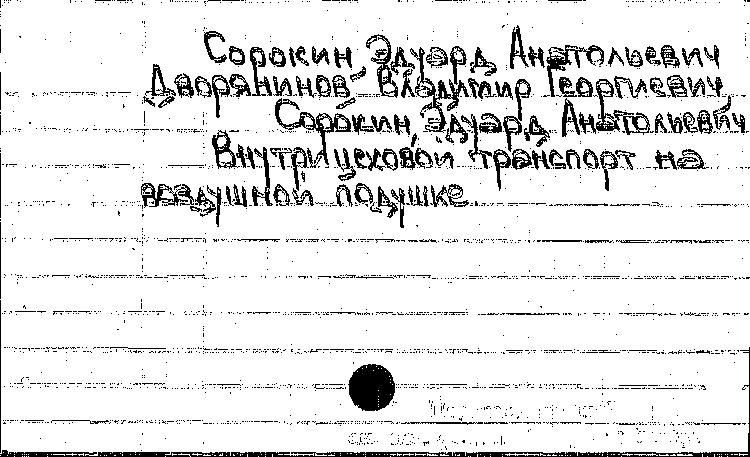 Сорокин Эдуард Анатольевич
Дворянинов Владимир Георгиевич
Сорокин, Эдуард Анатольевич
Внутрицеховой транспорт на
воздушной подушке.